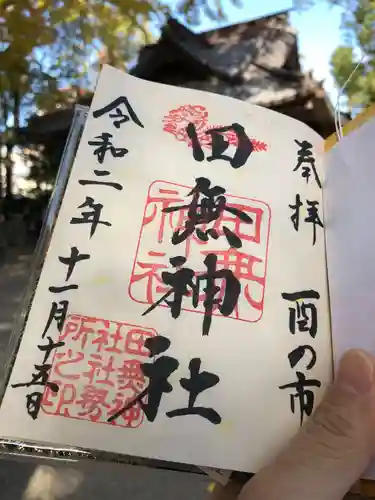 奉拝
酉の市
田無神社
令和二年
十一月十五日
田無
神社
田無
神社
社務
所之印